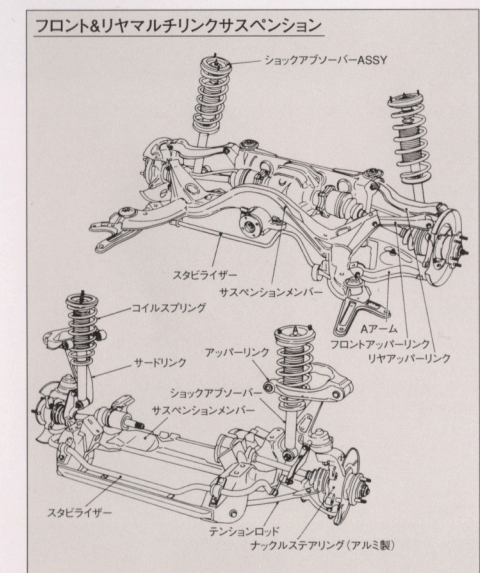 フロント&リヤマルチリンクサスペンション
ショックアブソーバーASSY
スタビライザー
サスペンションメンバー
Aアーム
フロントアッパーリンク
リヤアッパーリンク
コイルスプリング
サードリンク
アッパーリンク
ショックアブソーバー
サスペンションメンバー
スタビライザー
テンションロッド
ナックルステアリング(アルミ製)